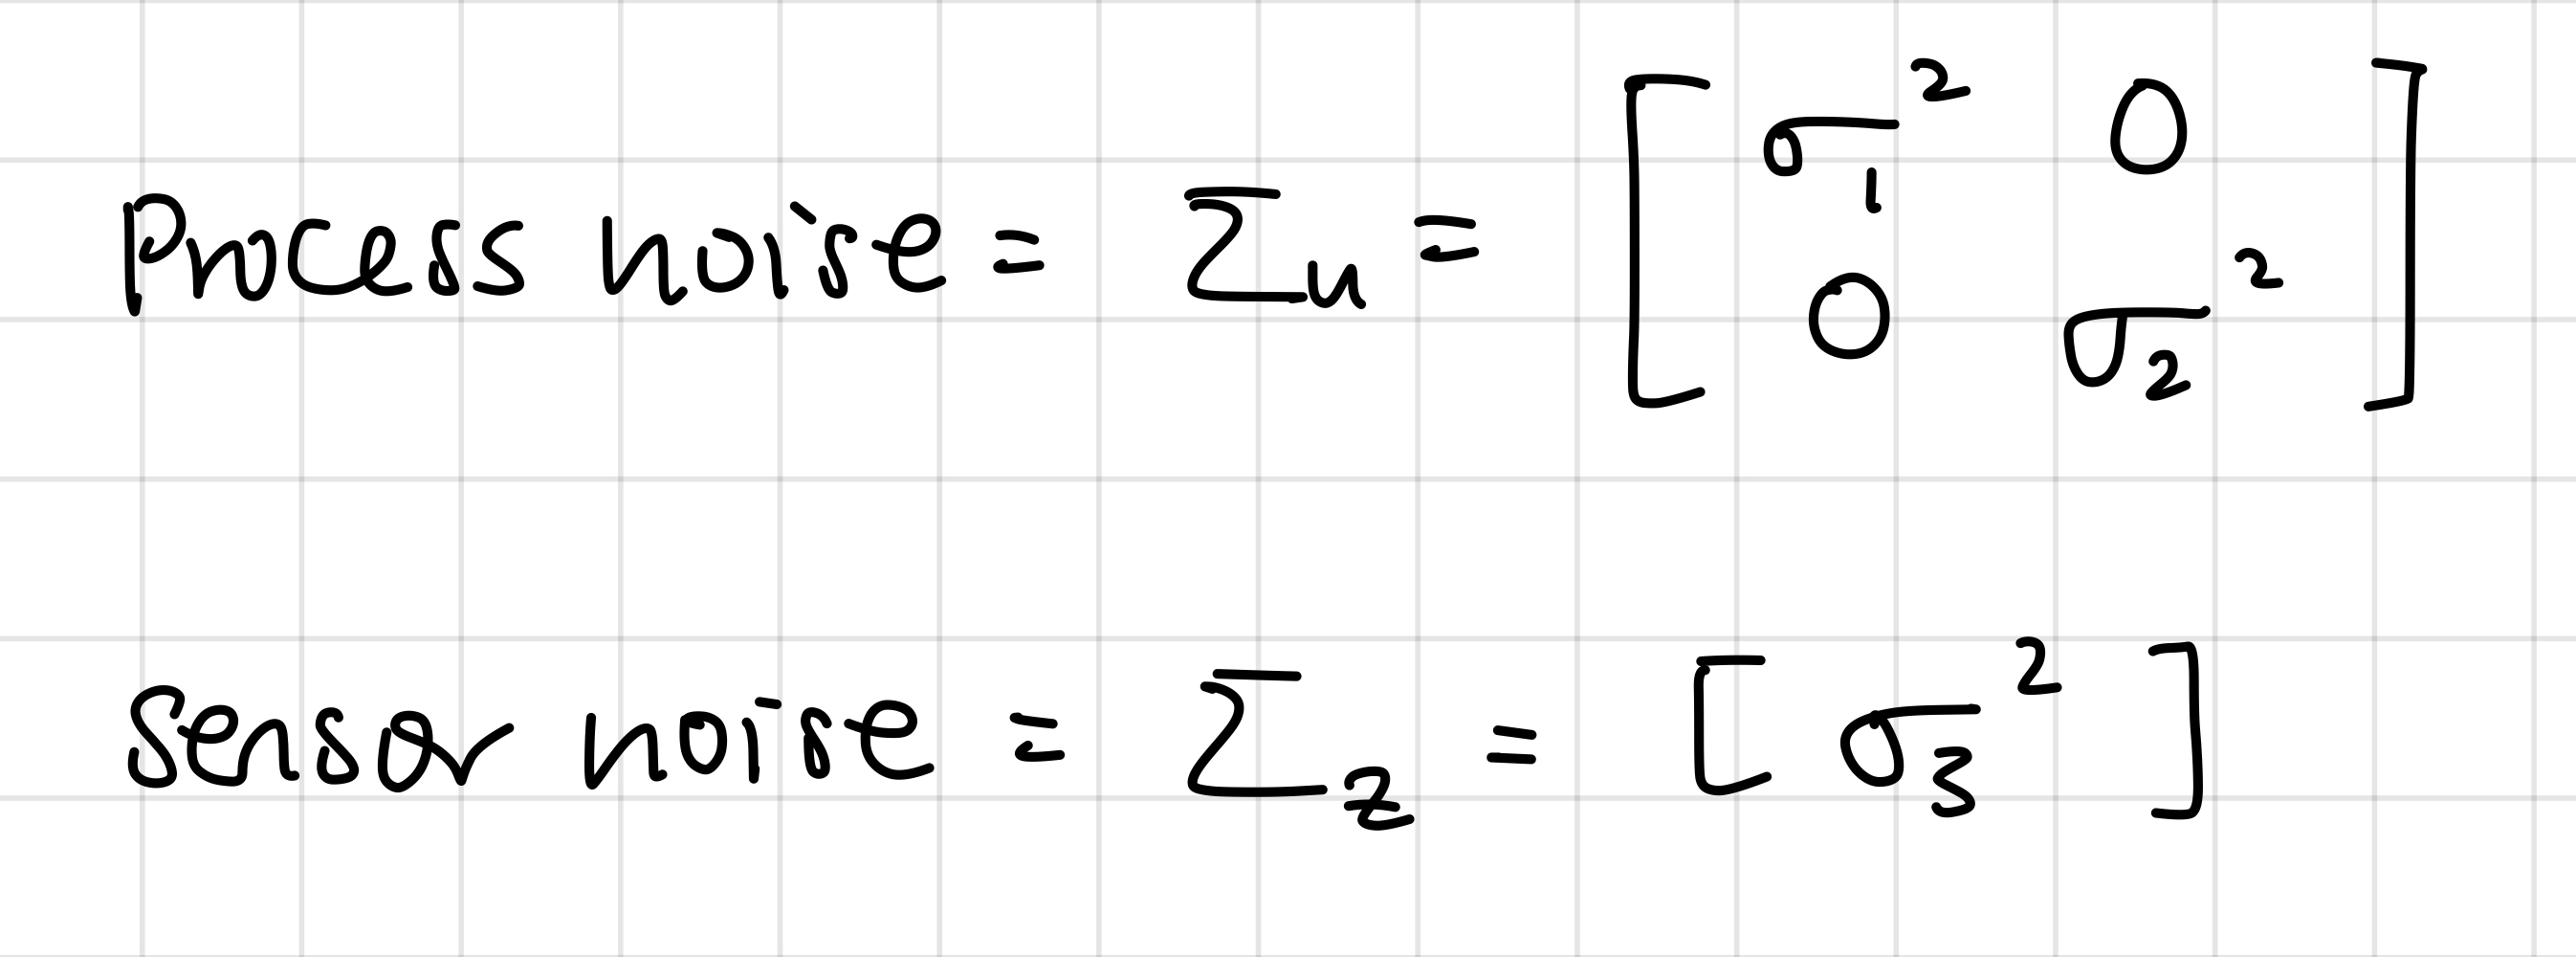 Process noise = Σ_u = [ σ_1^2 0 ; 0 σ_2^2 ]
Sensor noise = Σ_z = [ σ_3^2 ]